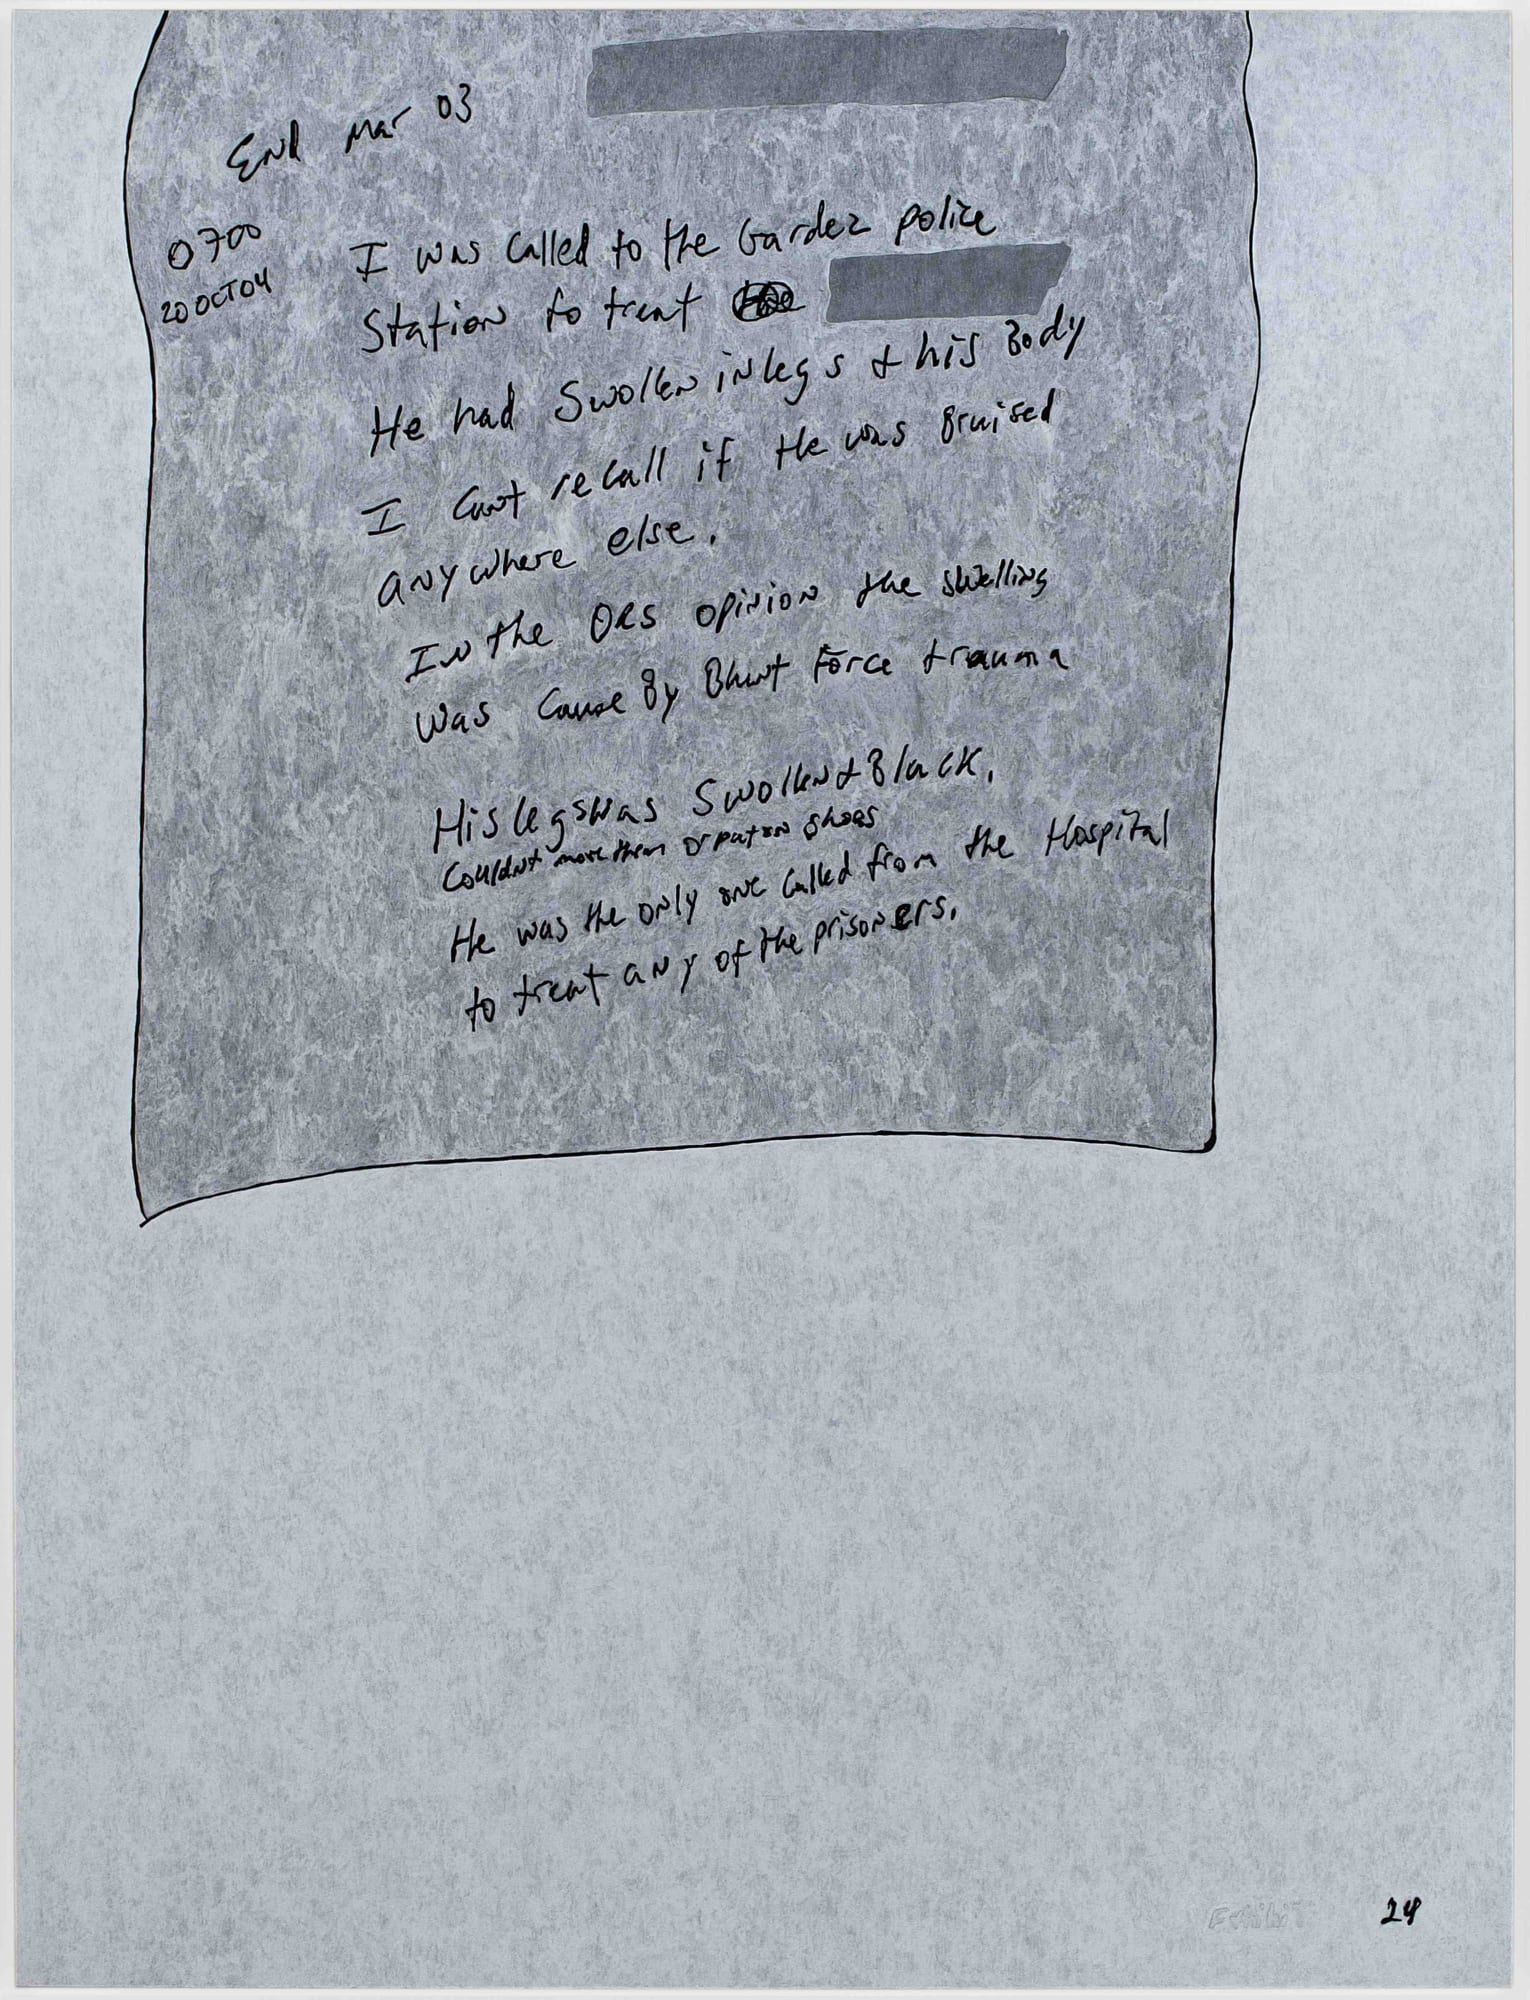 End Mar 03
0700
20 OCT 04
I was called to the Gardez police
Station to treat
He had Swollen in legs & his Body
I cant recall if He was Bruised
anywhere else.
In the DRS opinion the swelling
was cause By Blunt Force trauma
His legs was Swollen & Black.
Couldnt move them or put on shoes
He was the only one called from the Hospital
to treat any of the prisoners.
Exhibit 24